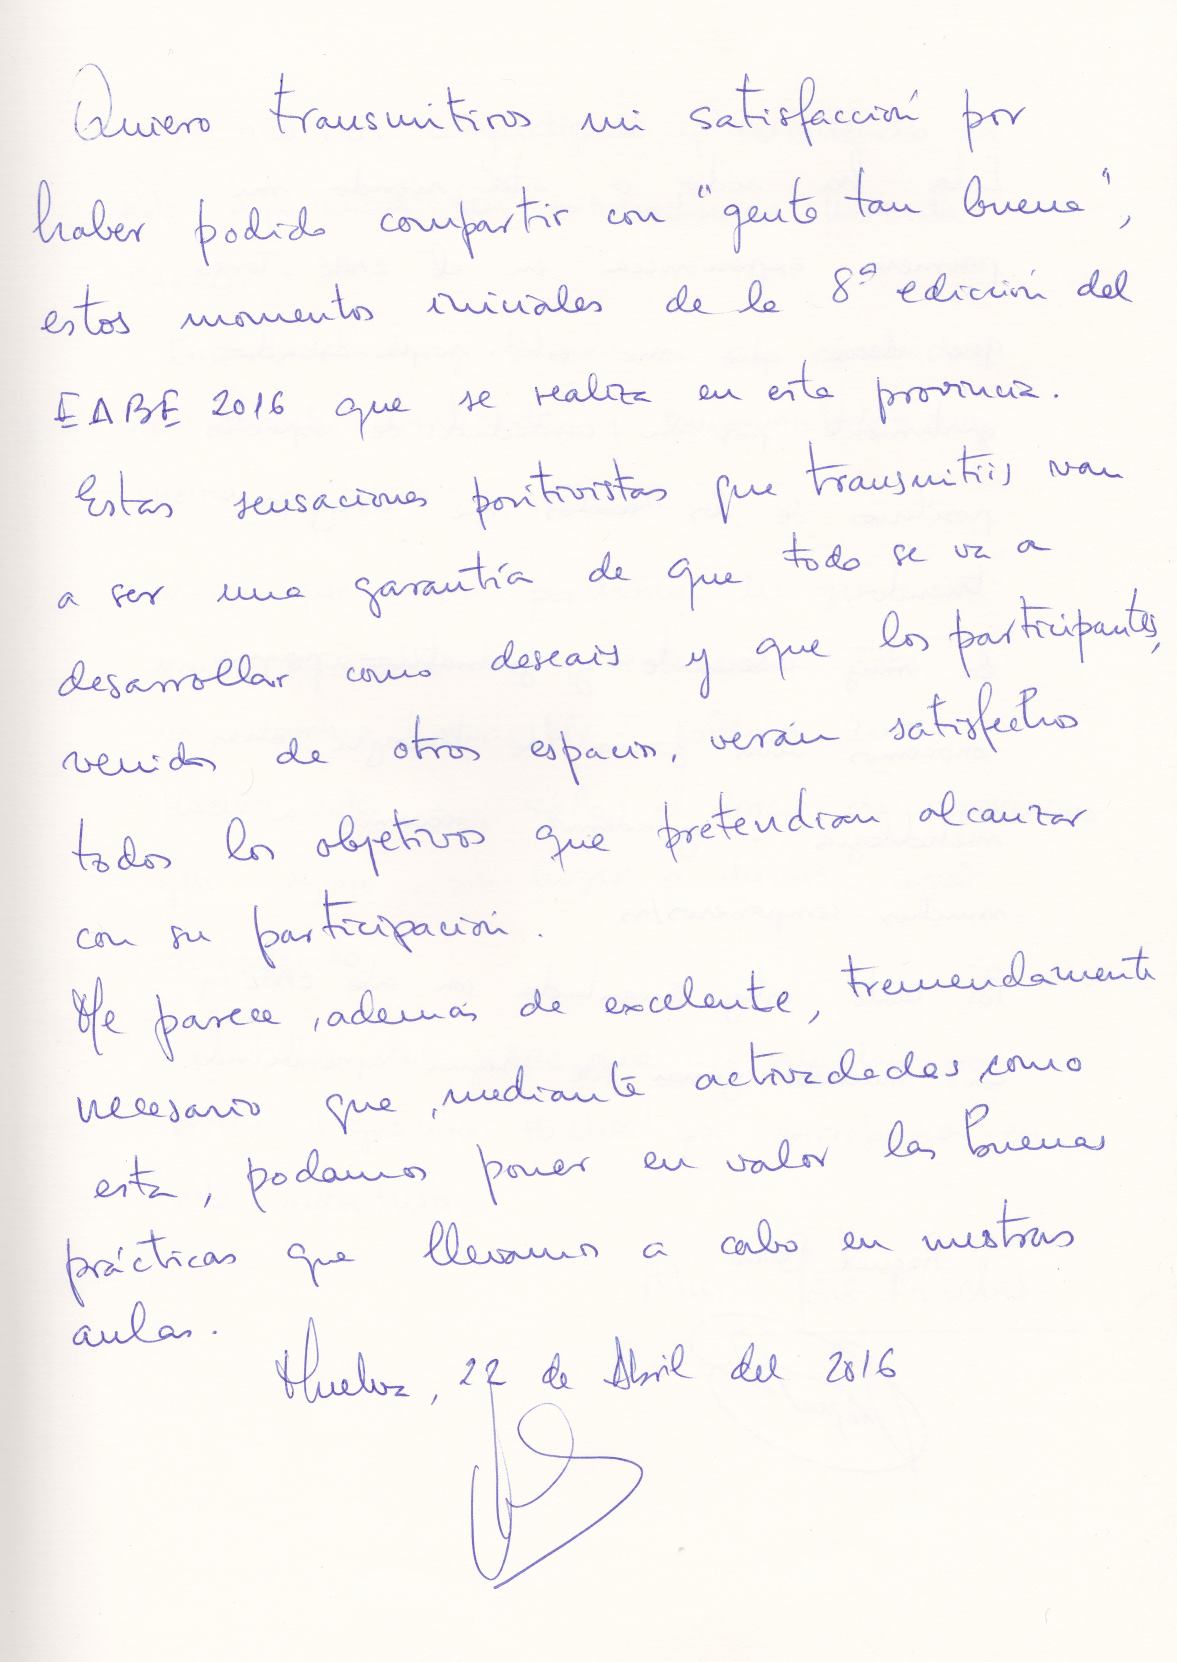 Quiero transmitiros mi satisfacción por
haber podido compartir con "gente tan buena",
estos momentos iniciales de la 8ª edición del
EABE 2016 que se realiza en esta provincia.
Estas sensaciones positivistas que transmitiis van
a ser una garantía de que todo se va a
desarrollar como deseais y que los participantes,
venidos de otros espacios, verán satisfechos
todos los objetivos que pretendian alcanzar
con su participación.
Me parece, además de excelente, tremendamente
necesario que, mediante actividades como
esta, podamos poner en valor las buenas
prácticas que llevamos a cabo en nuestras
aulas.
Huelva, 22 de Abril del 2016